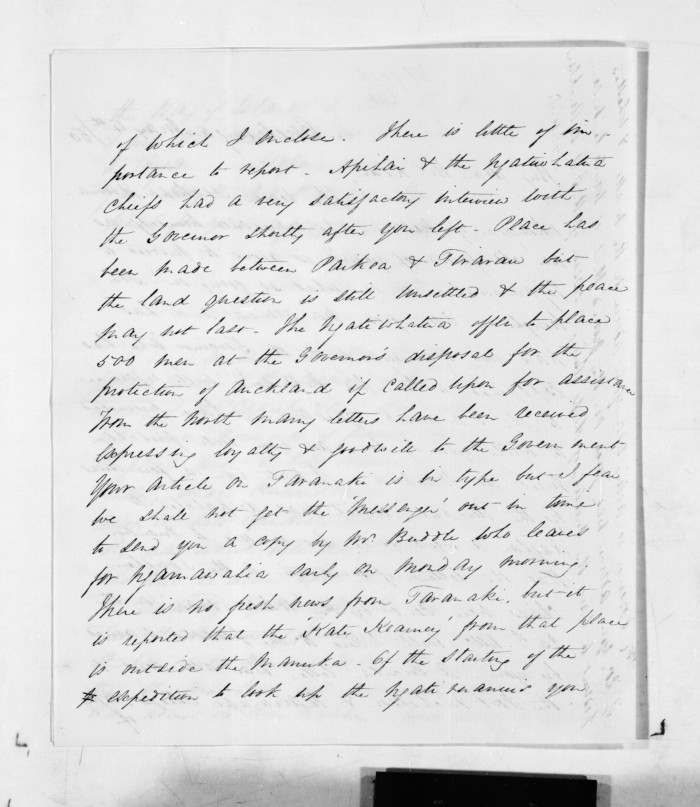 of which I enclose. There is little of im
portance to report. Apihai & the Ngatiwhatua
Chiefs had a very satisfactory interview with
the Governor shortly after you left. Peace has
been made between Paikea & Tirarau but
the land question is still unsettled & the peace
may not last. The Ngatiwhatua offer to place
500 men at the Governor's disposal for the
protection of Auckland if called upon for assistance
From the North many letters have been received
expressing loyalty & goodwill to the Government
Your article on Taranaki is in type but I fear
we shall not get the 'Messenger' out in time
to send you a copy by Mr. Buddle who leaves
for Ngaruawahia early on Monday morning.
There is no fresh news from Taranaki, but it
is reported that the 'Kate Kearney' from that place
is outside the Manuka. Of the starting of the
expedition to look up the Ngatiruanuis you